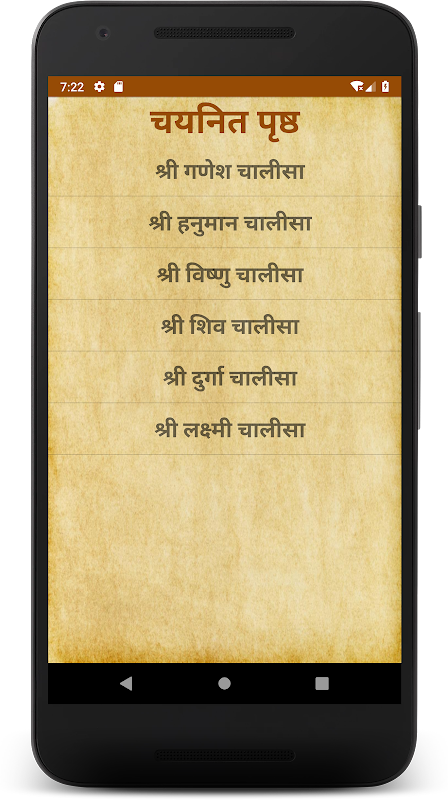 7:22
चयनित पृष्ठ
श्री गणेश चालीसा
श्री हनुमान चालीसा
श्री विष्णु चालीसा
श्री शिव चालीसा
श्री दुर्गा चालीसा
श्री लक्ष्मी चालीसा